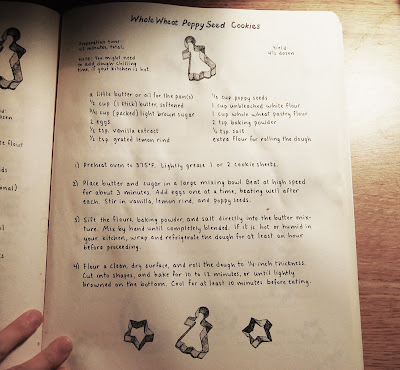 Whole Wheat Poppy Seed Cookies
Preparation time:
45 minutes, total.
Note: You might need
to add dough chilling
time, if your kitchen is hot.
Yield:
4½ dozen
a little butter or oil for the pan(s)
½ cup (1 stick) butter, softened
¾ cup (packed) light brown sugar
2 eggs
½ tsp. vanilla extract
½ tsp. grated lemon rind
⅓ cup poppy seeds
1 cup unbleached white flour
1 cup whole wheat pastry flour
2 tsp. baking powder
¼ tsp. salt
extra flour for rolling the dough
1) Preheat oven to 375°F. Lightly grease 1 or 2 cookie sheets.
2) Place butter and sugar in a large mixing bowl. Beat at high speed
for about 3 minutes. Add eggs one at a time, beating well after
each. Stir in vanilla, lemon rind, and poppy seeds.
3) Sift the flours, baking powder, and salt directly into the butter mix-
ture. Mix by hand until completely blended. If it is hot or humid in
your kitchen, wrap and refrigerate the dough for at least an hour
before proceeding.
4) Flour a clean, dry surface, and roll the dough to ¼-inch thickness.
Cut into shapes, and bake for 10 to 12 minutes, or until lightly
browned on the bottoms. Cool for at least 10 minutes before eating.